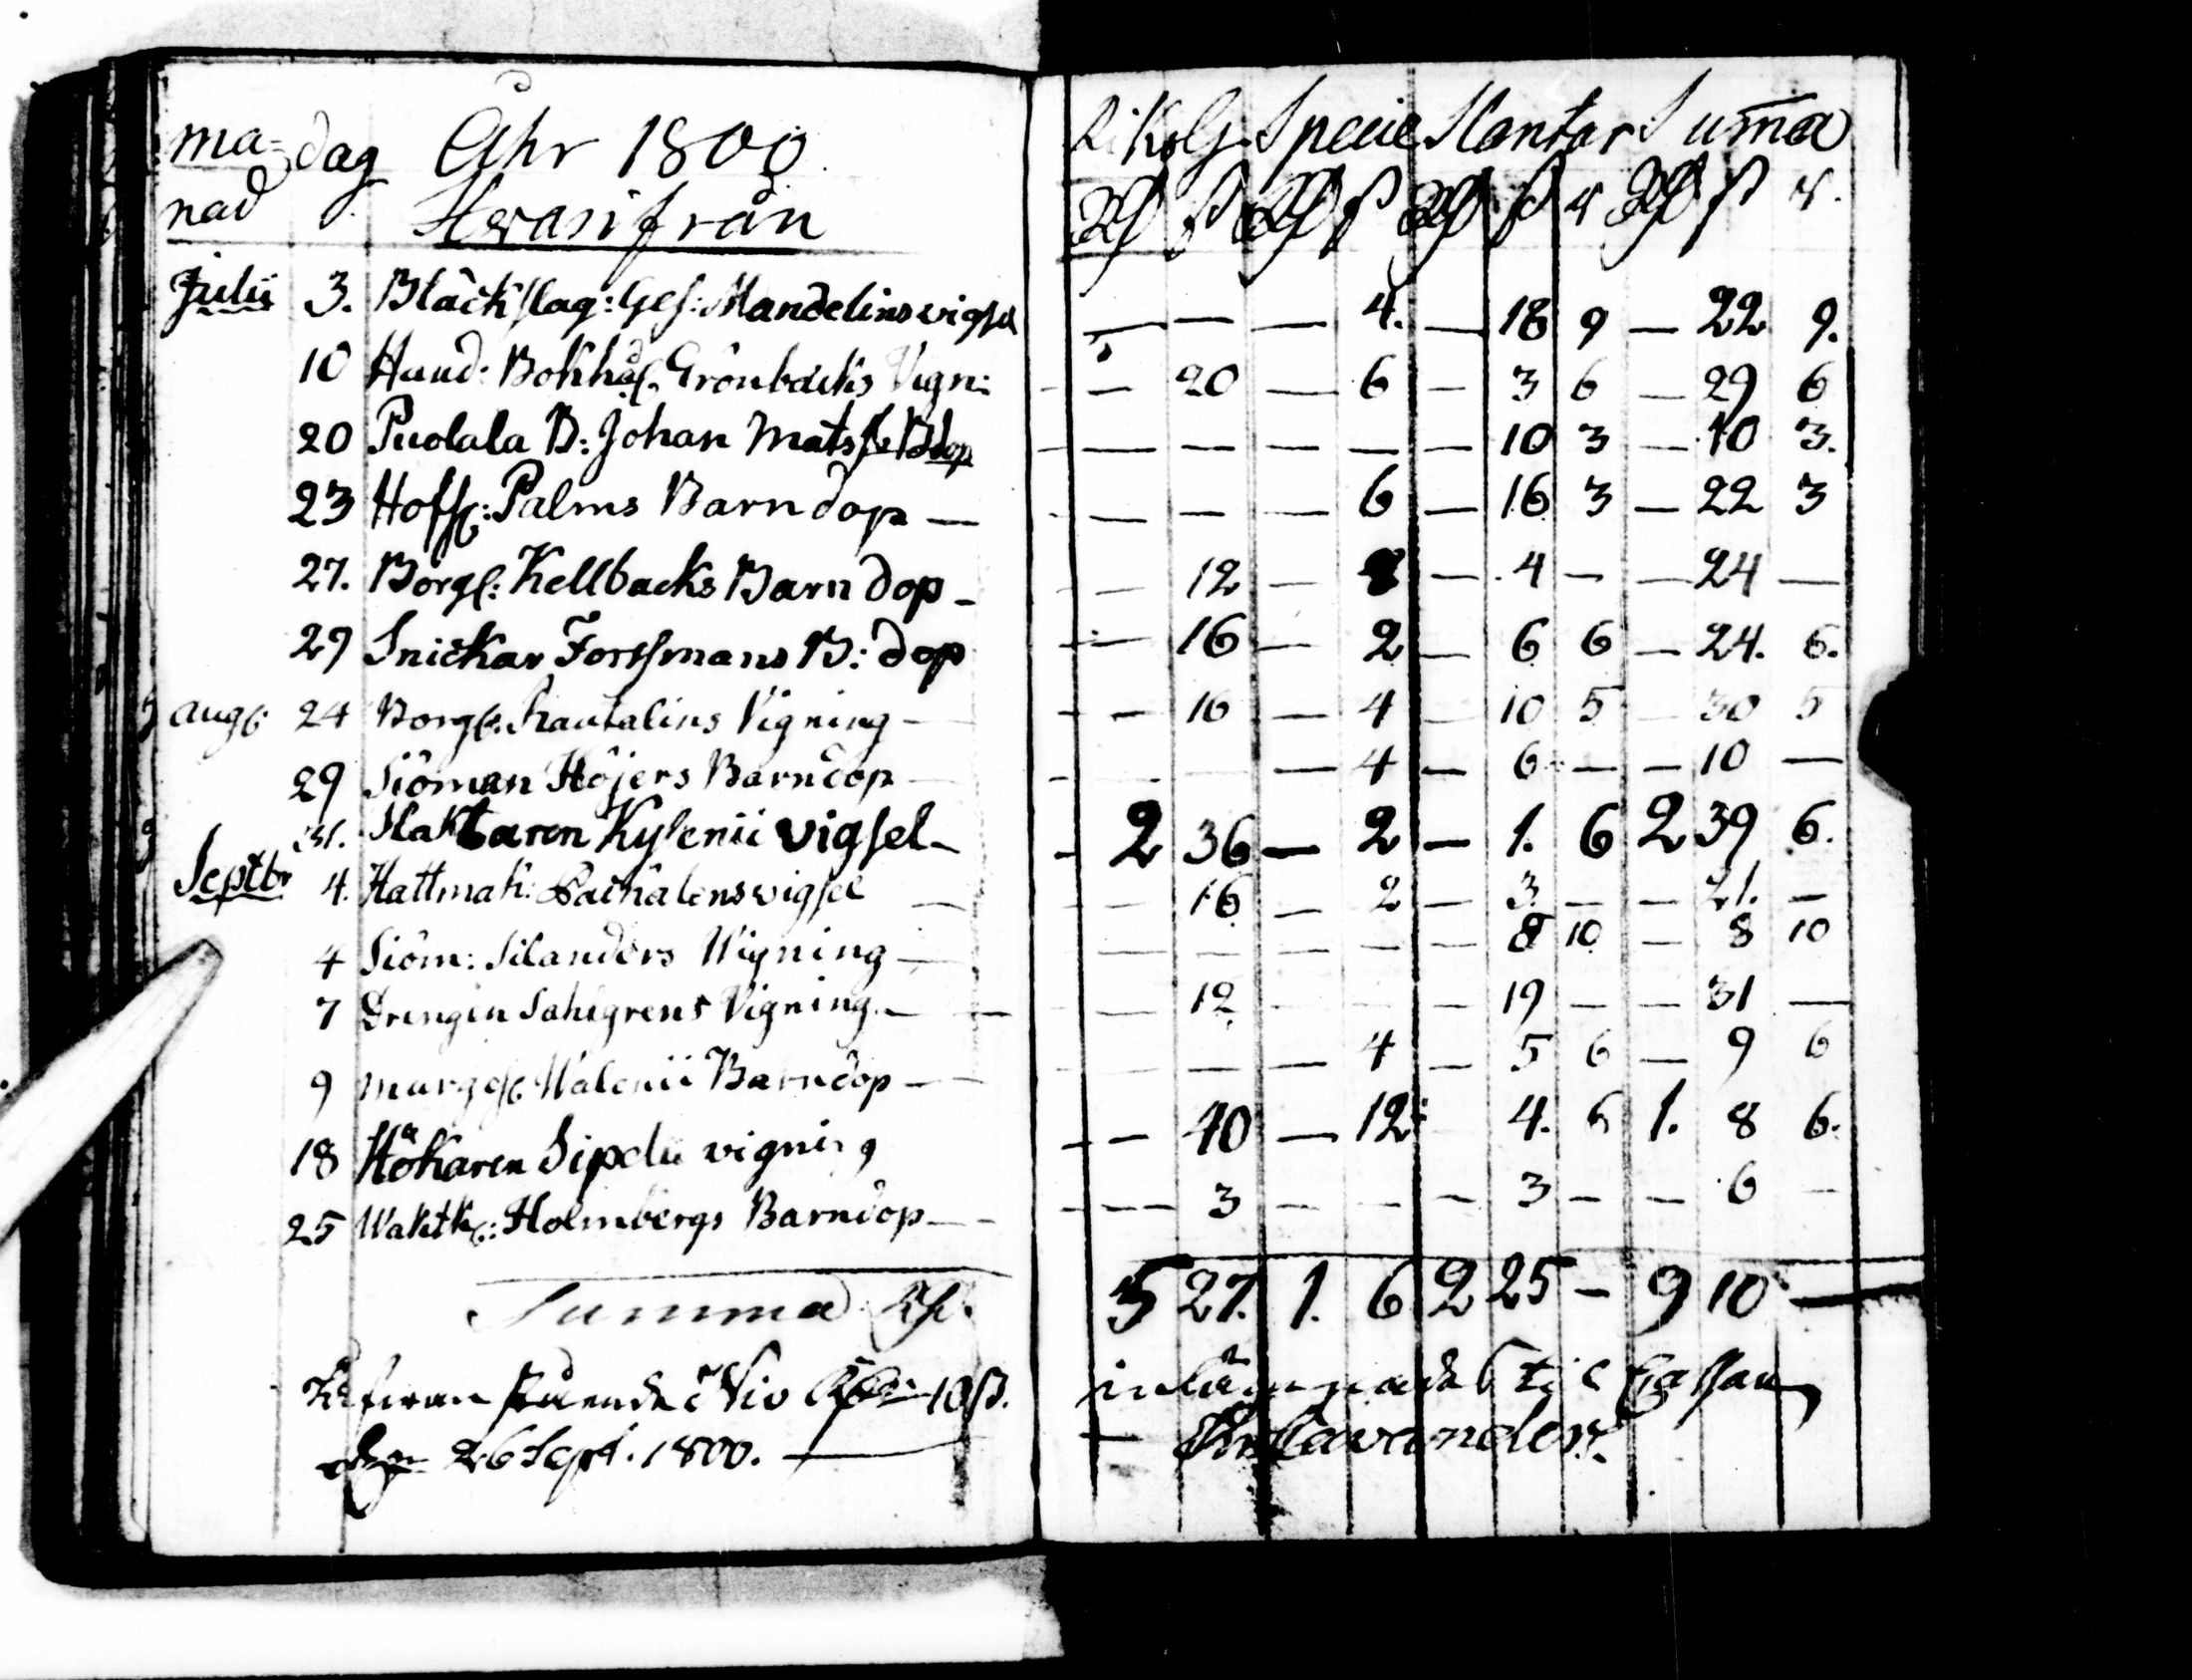 ma- dag Åhr 1800. RiksG. Specie Slantar Suma
nad Hvarifrån Rd ß Rd ß Rd ß r Rd ß r.
Julii 3. Bläckslag: Ges: Mandelins vigsel — — — 4. — 18 9 — 22 9.
10 Hand: Bokhål. Grönbäcks Vign: — 20 — 6 — 3 6 — 29 6
20 Puolala B: Johan Mats Bdop — — — — — 10 3 — 10 3.
23 Hofs: Palms Barndop — — — — 6 — 16 3 — 22 3
27. Borgs: Kellbacks Barndop — — 12 — 8 — 4 — — 24 —
29 Snickar Forssmans B: dop — 16 — 2 — 6 6 — 24. 6.
augs: 24 Borgs: Rautalins Vigning — — 16 — 4 — 10 5 — 30 5
29 Siöman Höjers Barndop — — — 4 — 6 — — 10 —
31. Slaktaren Kylenii vigsel — 2 36 — 2 — 1. 6 2 39 6.
Septbr 4. Hattmak: vigsel — — 16 — 2 — 3. — — 21. —
4 Siöm: Silanders Vigning — — — — — — 8 10 — 8 10
7 Drengen Sahlgrens Vigning. — — 12 — — — 19 — — 31 —
9 Walenii Barndop — — — — 4 — 5 6 — 9 6
18 Hökaren Sipelii vigning — 40 — 12 4. 6 1. 8 6.
25 Waktk: Holmbergs Barndop — — 3 — — — 3 — — 6 —
Summa Rd. 5 27. 1. 6 2 25 — 9 10 —
Nio 10 ß. inlämnade til Cassan
26 Sept. 1800. —